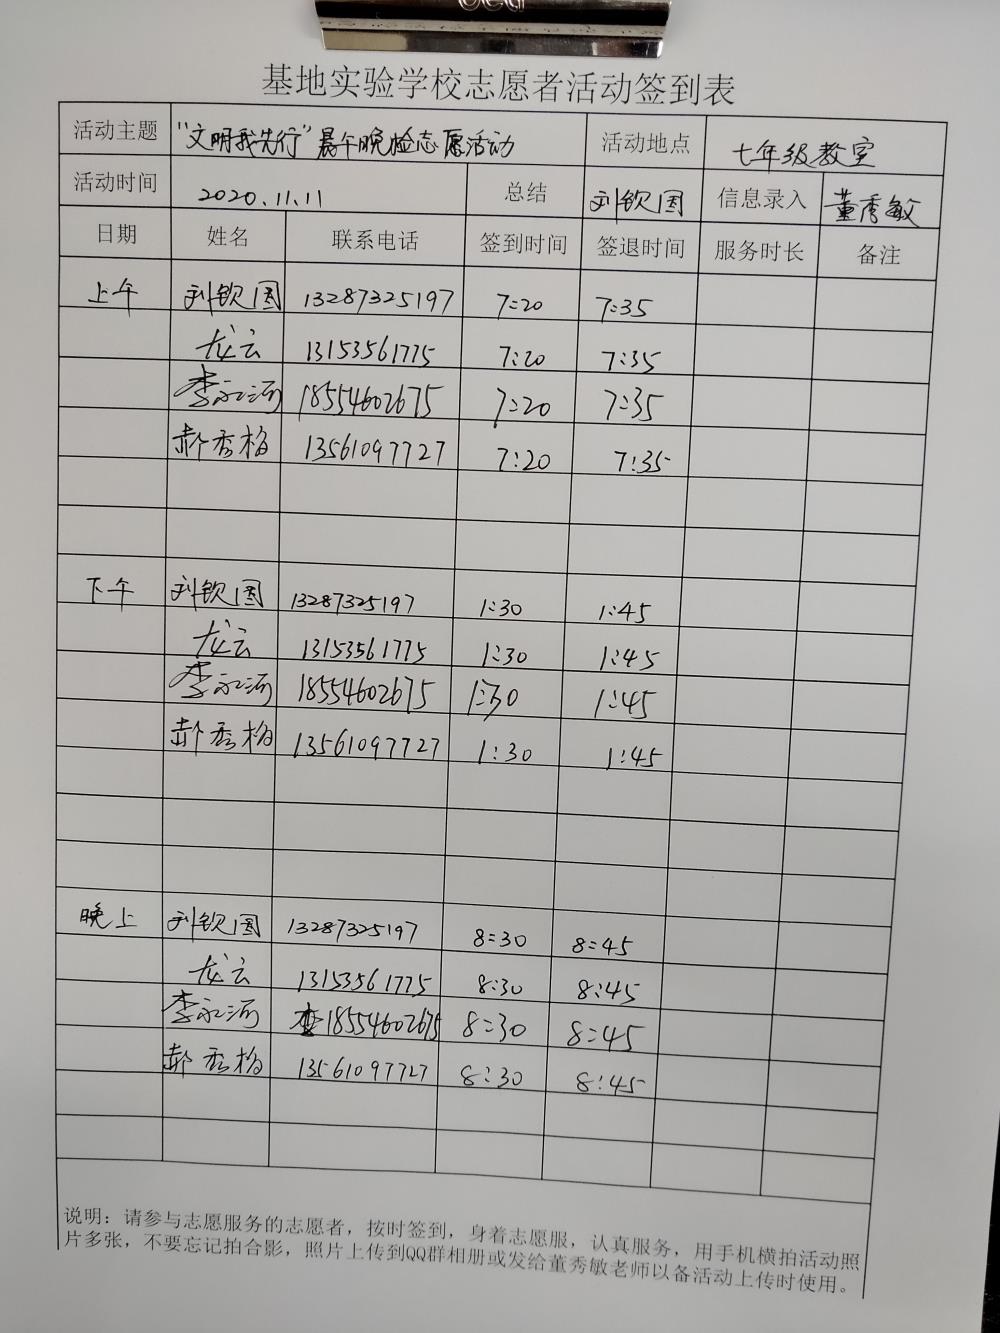 基地实验学校志愿者活动签到表
活动主题 "文明我先行"晨午晚检志愿活动 活动地点 七年级教室
活动时间 2020.11.11 总结 刘钦国 信息录入 董秀敏
日期 姓名 联系电话 签到时间 签退时间 服务时长 备注
上午 刘钦国 13287325197 7:20 7:35
龙云 13153561775 7:20 7:35
李永河 18554602675 7:20 7:35
郝秀梅 13561097727 7:20 7:35
下午 刘钦国 13287325197 1:30 1:45
龙云 13153561775 1:30 1:45
李永河 18554602675 1:30 1:45
郝秀梅 13561097727 1:30 1:45
晚上 刘钦国 13287325197 8:30 8:45
龙云 13153561775 8:30 8:45
李永河 18554602675 8:30 8:45
郝秀梅 13561097727 8:30 8:45
说明：请参与志愿服务的志愿者，按时签到，身着志愿服，认真服务，用手机横拍活动照
片多张，不要忘记拍合影，照片上传到QQ群相册或发给董秀敏老师以备活动上传时使用。